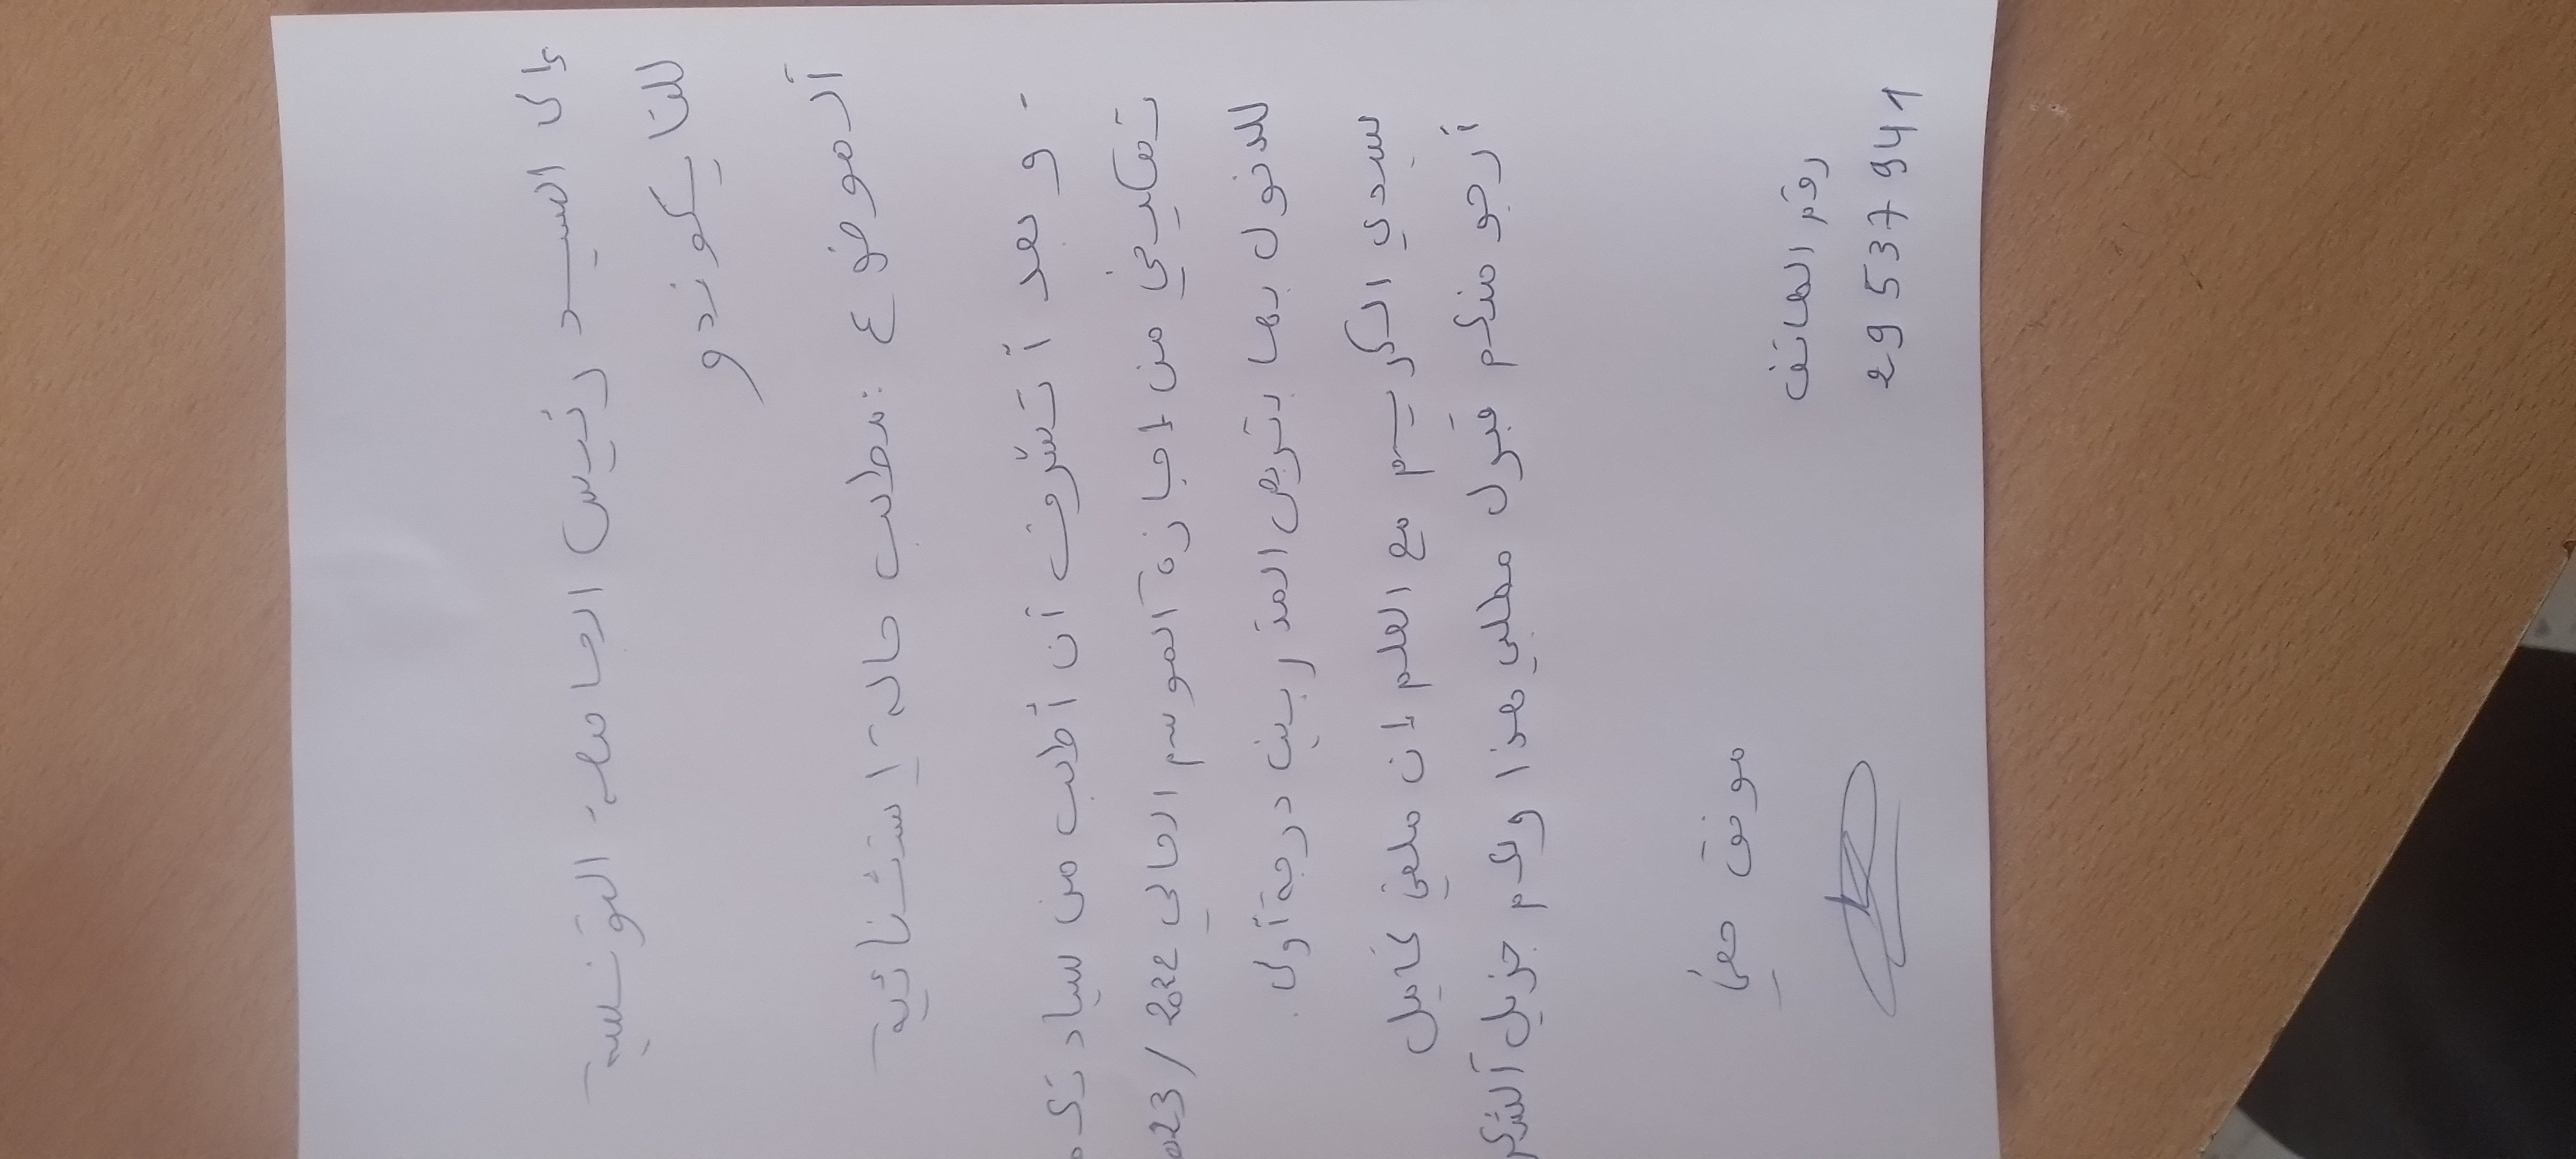 إلى السيد رئيس الجامعة التونسية
للتايكوندو
الموضوع : مطلب حالة إستثنائية
- و بعد أتشرف أن أطلب من سيادتكم
تمكيني من اجازة الموسم الحالي 2022 / 023
للدخول بها بتربص المدربين درجة أولى.
سيدي الكريم مع العلم إن ملفي كامل
أرجو منكم قبول مطلبي هذا ولكم جزيل الشكر
موفق حفي
رقم الهاتف
29 537 941